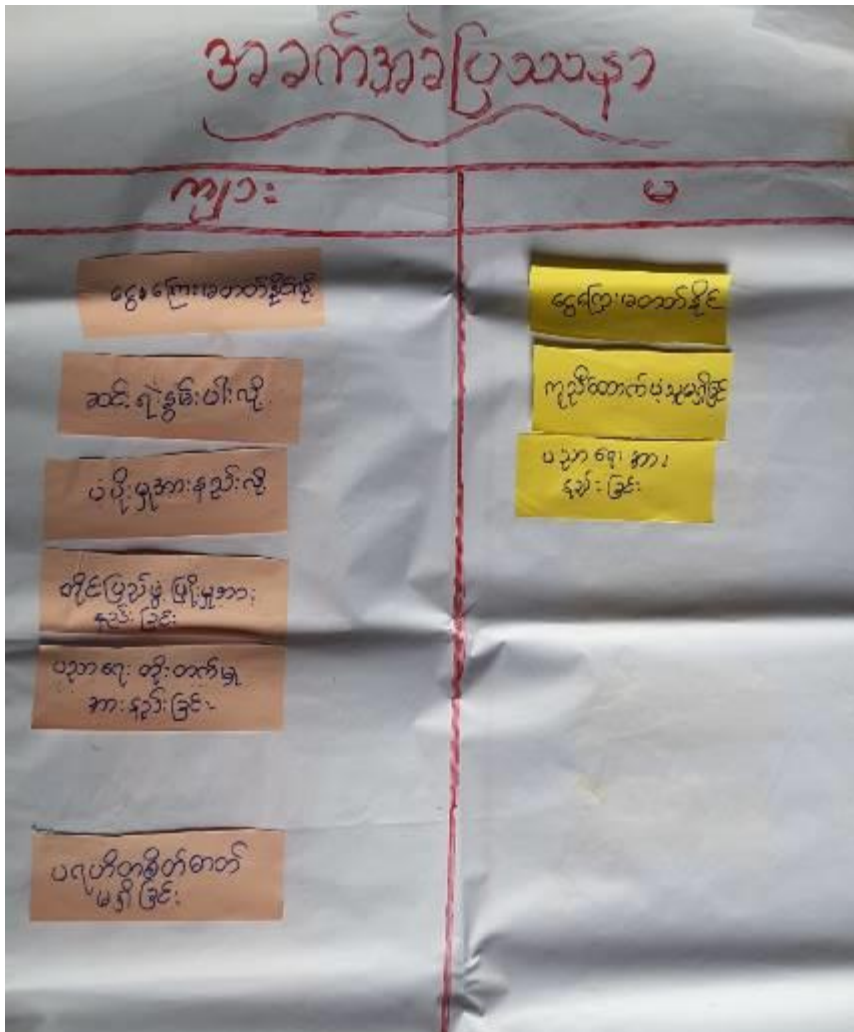 အခက်အခဲပြဿနာ
ကျား
မ
ငွေကြေးမတတ်နိုင်လို့
ဆင်းရဲနွမ်းပါးလို့
ပံ့ပိုးမှုအားနည်းလို့
တိုင်းပြည်ဖွံ့ဖြိုးမှုအား
နည်းခြင်း
ပညာရေး တိုးတက်မှု
အားနည်းခြင်း
ပရဟိတစိတ်ဓာတ်
မရှိခြင်း
ငွေကြေးမတတ်နိုင်
ကူညီထောက်ပံ့သူမရှိခြင်း
ပညာရေး အား
နည်းခြင်း